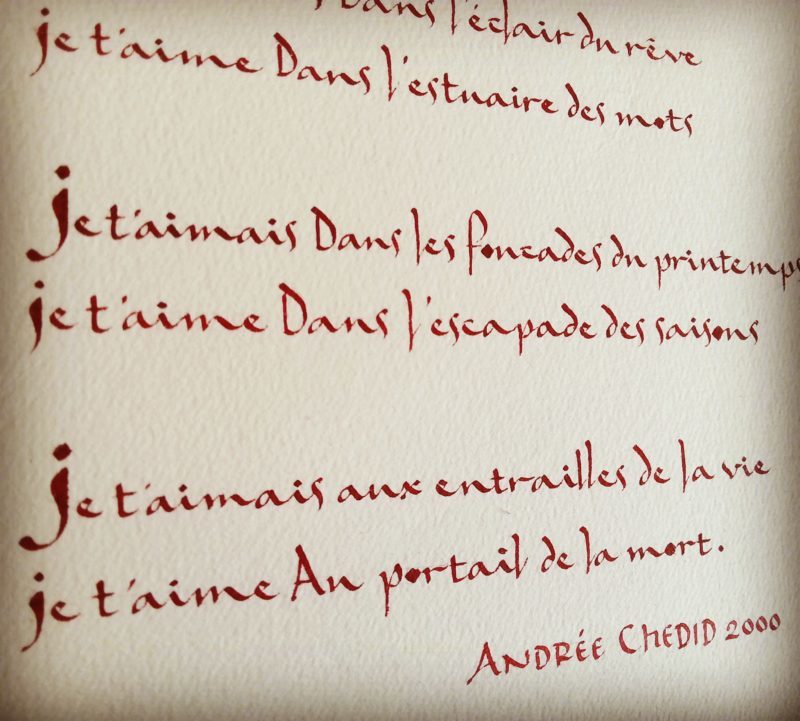 Dans l'éclair du rêve
je t'aime Dans l'estuaire des mots
Je t'aimais Dans les foucades du printemps
je t'aime Dans l'escapade des saisons
Je t'aimais aux entrailles de la vie
je t'aime Au portail de la mort.
ANDRÉE CHEDID 2000